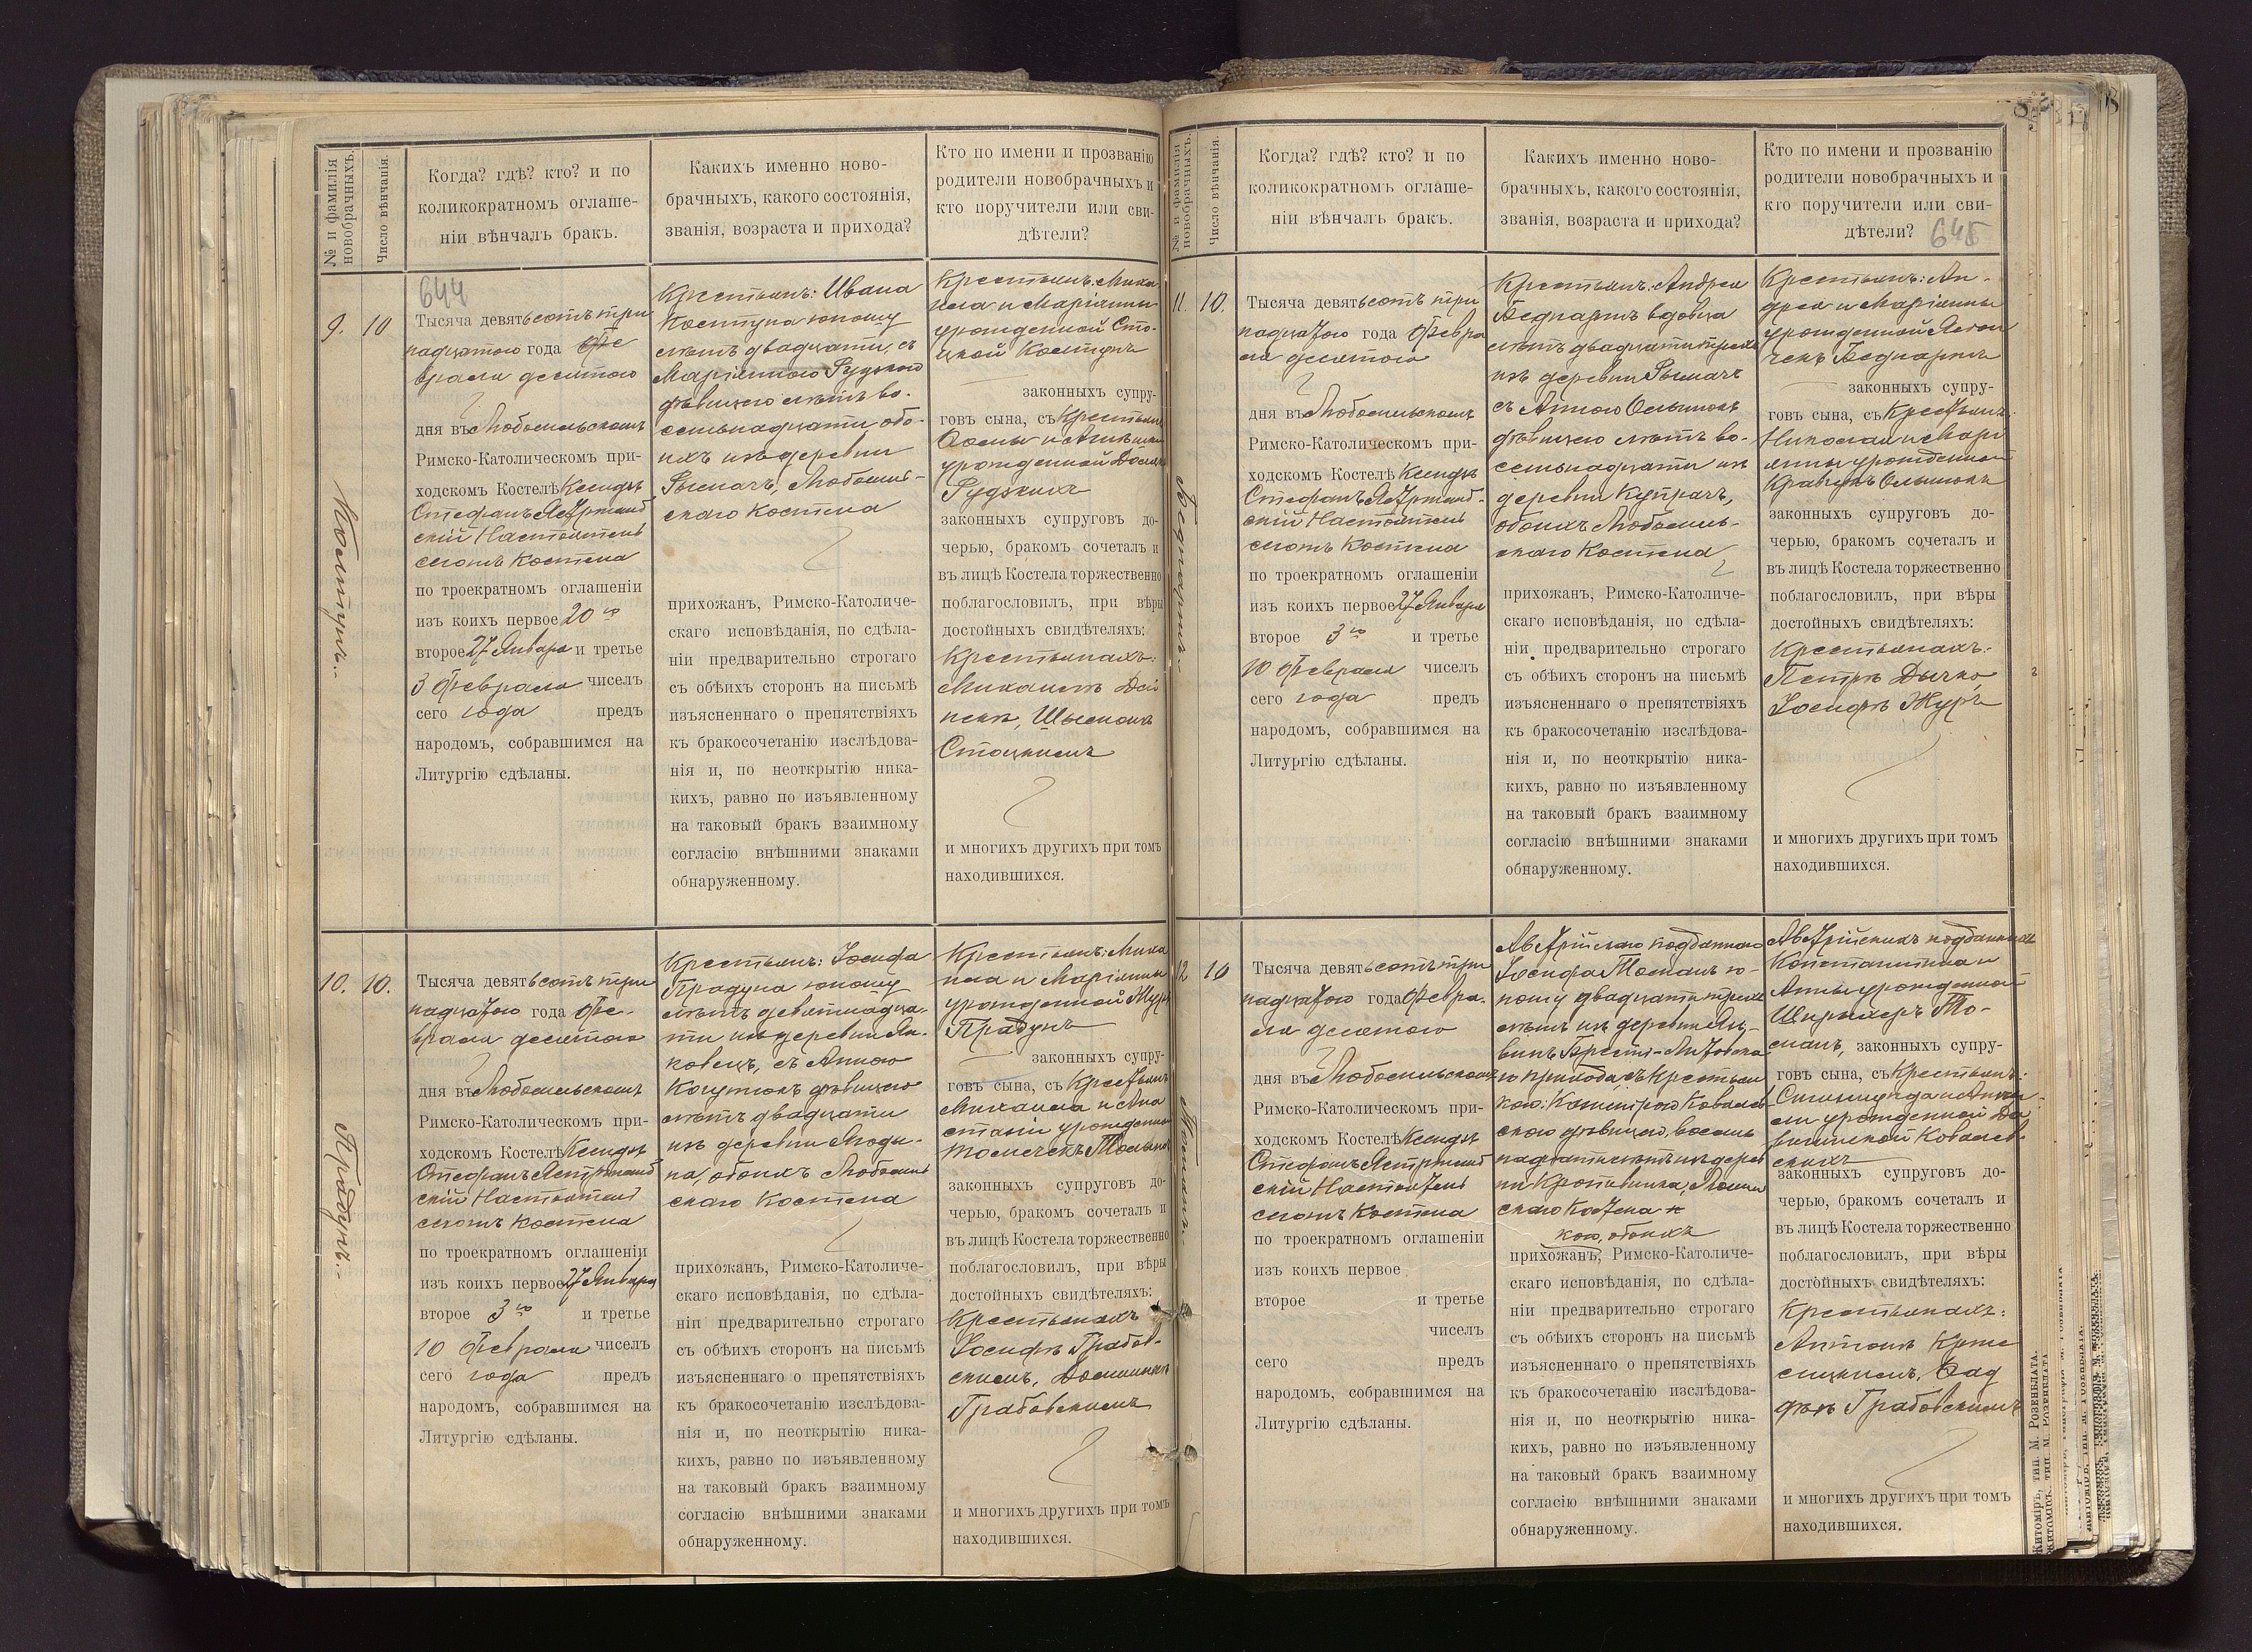 № и фамилія новобрачныхъ.
Число вѣнчанія.
Когда? гдѣ? кто? и по
коликократномъ оглаше-
ніи вѣнчалъ бракъ.
Какихъ именно ново-
брачныхъ, какого состоянія,
званія, возраста и прихода?
Кто по имени и прозванію
родители новобрачныхъ и
кто поручители или сви-
дѣтели?
9.
10
644
Тысяча девятьсотъ три
надцатого года Фе
враля десятого
дня въ Любомльскомъ
Римско-Католическомъ при-
ходскомъ Костелѣ Ксендзъ
Стефанъ Ястржемб
скій Настоятель
сегомъ Костела
по троекратномъ оглашеніи
изъ коихъ первое 20 го
второе 27 Января и третье
3 Февраля чиселъ
сего года предъ
народомъ, собравшимся на
Литургію сдѣланы.
Крестьянъ: Ивана
Костуна юношу
лѣтъ двадцати, съ
Маріанною Рудзкою
дѣвицею лѣтъ во-
семьнадцати обо-
ихъ изъ деревни
Рымачъ, Любомль-
скаго Костела
прихожанъ, Римско-Католиче-
скаго исповѣданія, по сдѣла-
ніи предварительно строгаго
съ обѣихъ сторонъ на письмѣ
изъясненнаго о препятствіяхъ
къ бракосочетанію изслѣдова-
нія и, по неоткрытію ника-
кихъ, равно по изъявленному
на таковый бракъ взаимному
согласію внѣшними знаками
обнаруженному.
Крестьянъ: Миха
ила и Маріанны
урожденной Сто-
цкой Костунъ
законныхъ супру-
говъ сына, съ Крестьянъ
урожденной
Рудзкихъ
законныхъ супруговъ до-
черью, бракомъ сочеталъ и
въ лицѣ Костела торжественно
поблагословилъ, при вѣры
достойныхъ свидѣтеляхъ:
Крестьянахъ:
Михаилъ
Стоцкимъ
и многихъ другихъ при томъ
находившихся.
10.
10.
Тысяча девятьсотъ три
надцатого года Фе-
враля десятого
дня въ Любомльскомъ
Римско-Католическомъ при-
ходскомъ Костелѣ Ксендзъ
Стефанъ Ястржемб
скій Настоятель
сегомъ Костела
по троекратномъ оглашеніи
изъ коихъ первое 27 Января
второе 3 го и третье
10 Февраля чиселъ
сего года предъ
народомъ, собравшимся на
Литургію сдѣланы.
Крестьянъ: Іосифа
Прадуна юношу
лѣтъ девятнадца-
ти изъ деревни Ян-
ковецъ, съ Анною
дѣвицею
лѣтъ двадцати
изъ деревни
на, обоихъ Любомль
скаго Костела
прихожанъ, Римско-Католиче-
скаго исповѣданія, по сдѣла-
ніи предварительно строгаго
съ обѣихъ сторонъ на письмѣ
изъясненнаго о препятствіяхъ
къ бракосочетанію изслѣдова-
нія и, по неоткрытію ника-
кихъ, равно по изъявленному
на таковый бракъ взаимному
согласію внѣшними знаками
обнаруженному.
Крестьянъ: Миха
ила и Маріанны
урожденной Журъ
Прадунъ
законныхъ супру-
говъ сына, съ Крестьянъ
Михаила и Ана
стасіи урожденной
законныхъ супруговъ до-
черью, бракомъ сочеталъ и
въ лицѣ Костела торжественно
поблагословилъ, при вѣры
достойныхъ свидѣтеляхъ:
Крестьянахъ
Іосифъ Грабов-
скимъ, Доминикъ
Грабовскимъ
и многихъ другихъ при томъ
находившихся.
Прадунъ.-
№ и фамилія новобрачныхъ.
Число вѣнчанія.
Когда? гдѣ? кто? и по
коликократномъ оглаше-
ніи вѣнчалъ бракъ.
Какихъ именно ново-
брачныхъ, какого состоянія,
званія, возраста и прихода?
Кто по имени и прозванію
родители новобрачныхъ и
кто поручители или сви-
дѣтели?
645
11.
10.
Тысяча девятьсотъ три
надцатого года Февра
ля десятого
дня въ Любомльскомъ
Римско-Католическомъ при-
ходскомъ Костелѣ Ксендзъ
Стефанъ Ястржемб-
скій Настоятель
сегомъ Костела
по троекратномъ оглашеніи
изъ коихъ первое 27 Января
второе 3 го и третье
10 Февраля чиселъ
сего года предъ
народомъ, собравшимся на
Литургію сдѣланы.
Крестьянъ: Андрея
Беднаржъ вдовца
лѣтъ двадцати трехъ
изъ деревни Рымачъ
съ Анною
дѣвицею лѣтъ во-
семьнадцати изъ
деревни Купрачъ,
обоихъ Любомль-
скаго Костела
прихожанъ, Римско-Католиче-
скаго исповѣданія, по сдѣла-
ніи предварительно строгаго
съ обѣихъ сторонъ на письмѣ
изъясненнаго о препятствіяхъ
къ бракосочетанію изслѣдова-
нія и, по неоткрытію ника-
кихъ, равно по изъявленному
на таковый бракъ взаимному
согласію внѣшними знаками
обнаруженному.
Крестьянъ: Ан-
дрея и Маріанны
урожденной
Беднаржъ
законныхъ супру-
говъ сына, съ Крестьянъ:
Николая и Марі
анны урожденной
Кравчукъ
законныхъ супруговъ до-
черью, бракомъ сочеталъ и
въ лицѣ Костела торжественно
поблагословилъ, при вѣры
достойныхъ свидѣтеляхъ:
Крестьянахъ:
Петръ Дычко,
Іосифъ Журъ
и многихъ другихъ при томъ
находившихся.
Беднаржъ.-
12
10
Тысяча девятьсотъ три
надцатого года Февра-
ля десятого
дня въ Любомльскомъ
Римско-Католическомъ при-
ходскомъ Костелѣ Ксендзъ
Стефанъ Ястржемб
скій Настоятель
сегомъ Костела
по троекратномъ оглашеніи
изъ коихъ первое
второе и третье
чиселъ
сего предъ
народомъ, собравшимся на
Литургію сдѣланы.
Австрійскаго подданнаго
Іосифа Томанъ ю-
ношу двадцати трехъ
лѣтъ изъ деревни
Брестъ-Литовска
го прихода, съ Крестьян
кою: Ковалев
скою дѣвицею, восемь
надцати лѣтъ изъ дерев
ни
скаго Костела
кою, обоихъ
прихожанъ, Римско-Католиче-
скаго исповѣданія, по сдѣла-
ніи предварительно строгаго
съ обѣихъ сторонъ на письмѣ
изъясненнаго о препятствіяхъ
къ бракосочетанію изслѣдова-
нія и, по неоткрытію ника-
кихъ, равно по изъявленному
на таковый бракъ взаимному
согласію внѣшними знаками
обнаруженному.
Австрійскихъ подданныхъ
Константина и
Анны урожденной
То-
манъ, законныхъ супру-
говъ сына, съ Крестьянъ:
урожденной
Ковалев-
скихъ
законныхъ супруговъ до-
черью, бракомъ сочеталъ и
въ лицѣ Костела торжественно
поблагословилъ, при вѣры
достойныхъ свидѣтеляхъ:
Крестьянахъ:
Антонъ
Грабовскимъ
и многихъ другихъ при томъ
находившихся.
Житоміръ, тип. М. Розенблата.